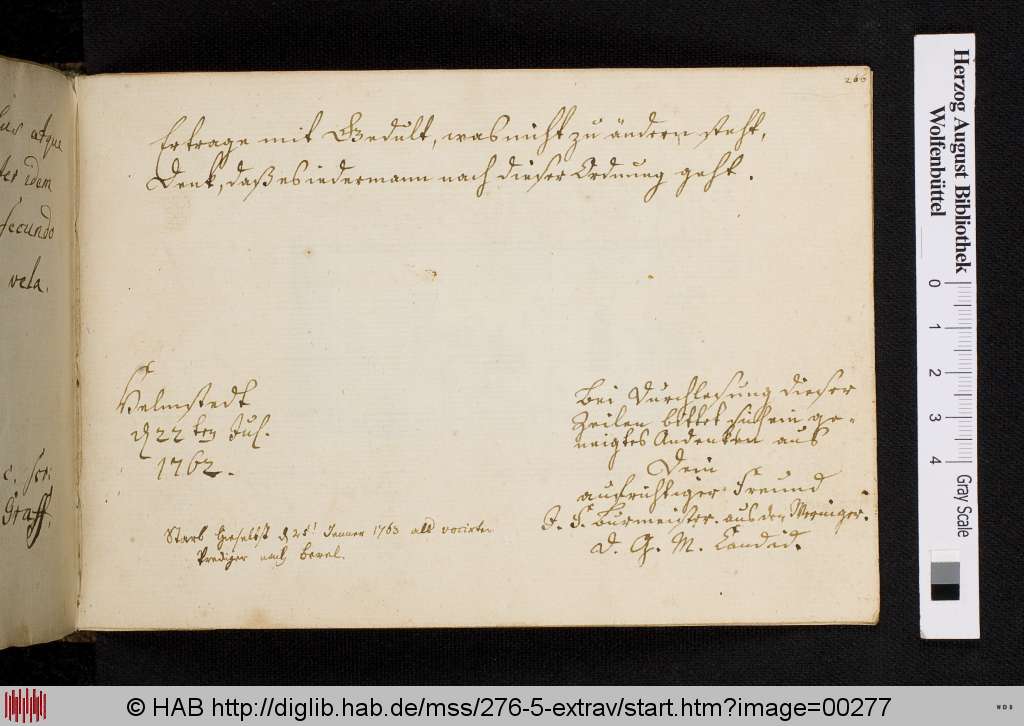 us atque
ter idem
secundo
vela.
Graff.
260
Ertrage mit Gedult, was nicht zu ändern steht,
Denk, daß es iedermann nach dieser Ordnung geht.
Helmstedt
d 22 ten Jul.
1762.
Bei Durchlesung dieser
Zeilen bittet sich ein ge-
neigtes Andenken aus
Dein
aufrichtiger Freund
J. F. Burmeister. aus dem
d. G. M. Candid.
Starb hieselbst d 25t Jenner 1763 als vocirter
Prediger nach Bevel.
Herzog August Bibliothek
Wolfenbüttel
0
1
2
3
4
Gray Scale
© HAB http://diglib.hab.de/mss/276-5-extrav/start.htm?image=00277
WDB